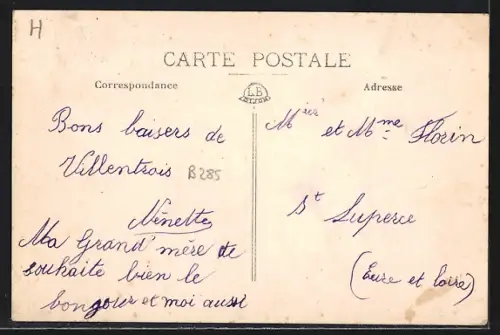 H
CARTE POSTALE
Correspondance
LB
Adresse
Bons baisers de
Villentrois
B285
Nénette
Ma Grand'mère te
souhaite bien le
bonjour et moi aussi
Mier et Mme Florin
St Luperce
(Eure et Loire)